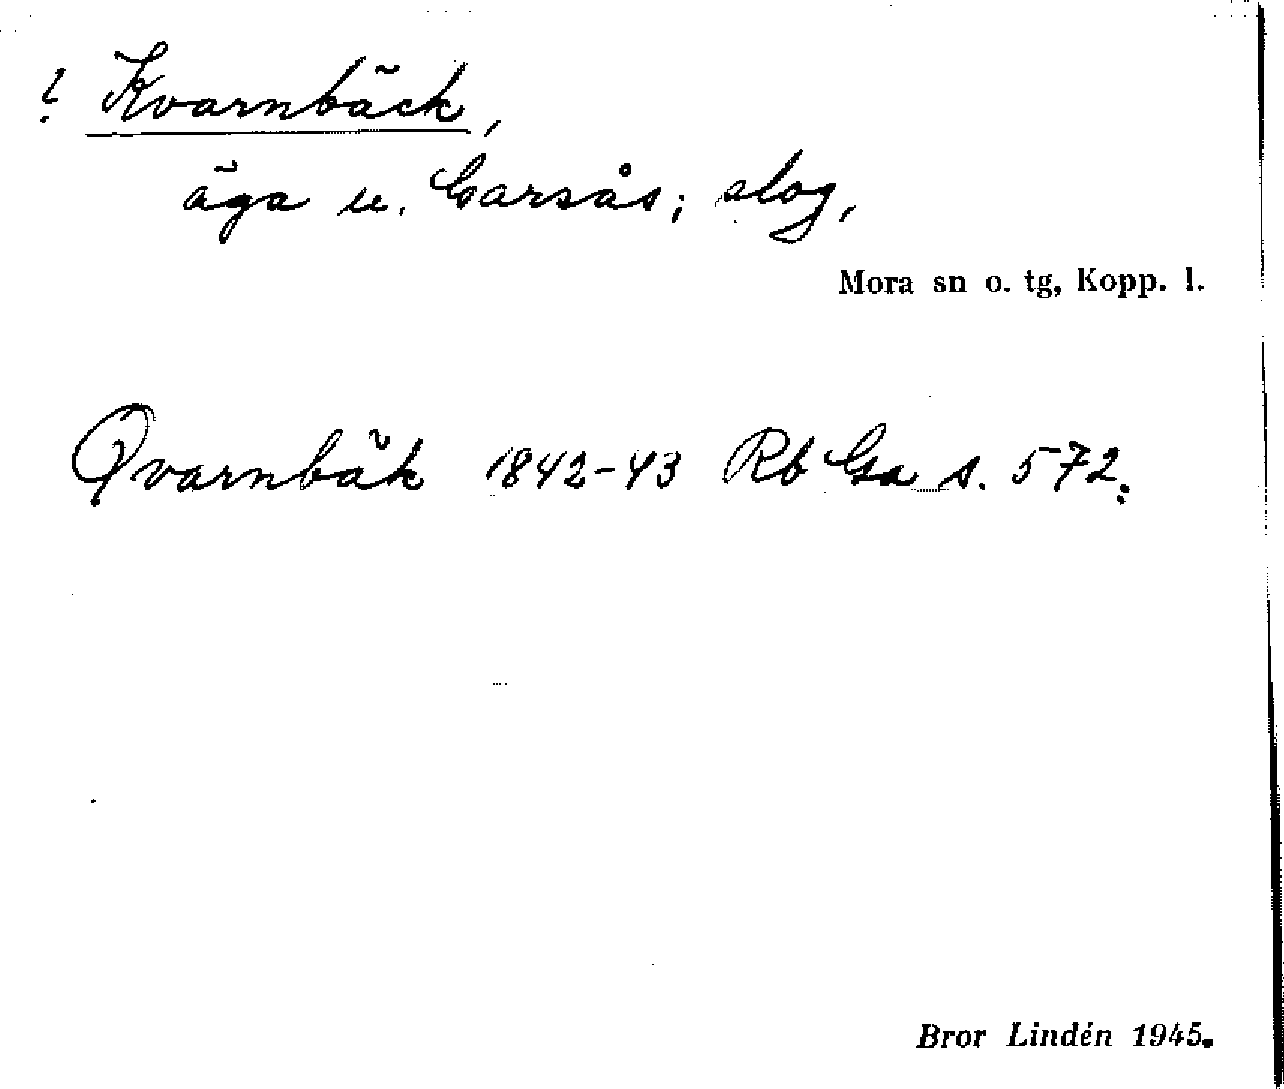 ? Kvarnbäck,
äga u. Garsås; slog,
Mora sn o. tg, Kopp. l.
Qvarnbäk 1842-43 Rb Ga s. 572.
Bror Lindén 1945.